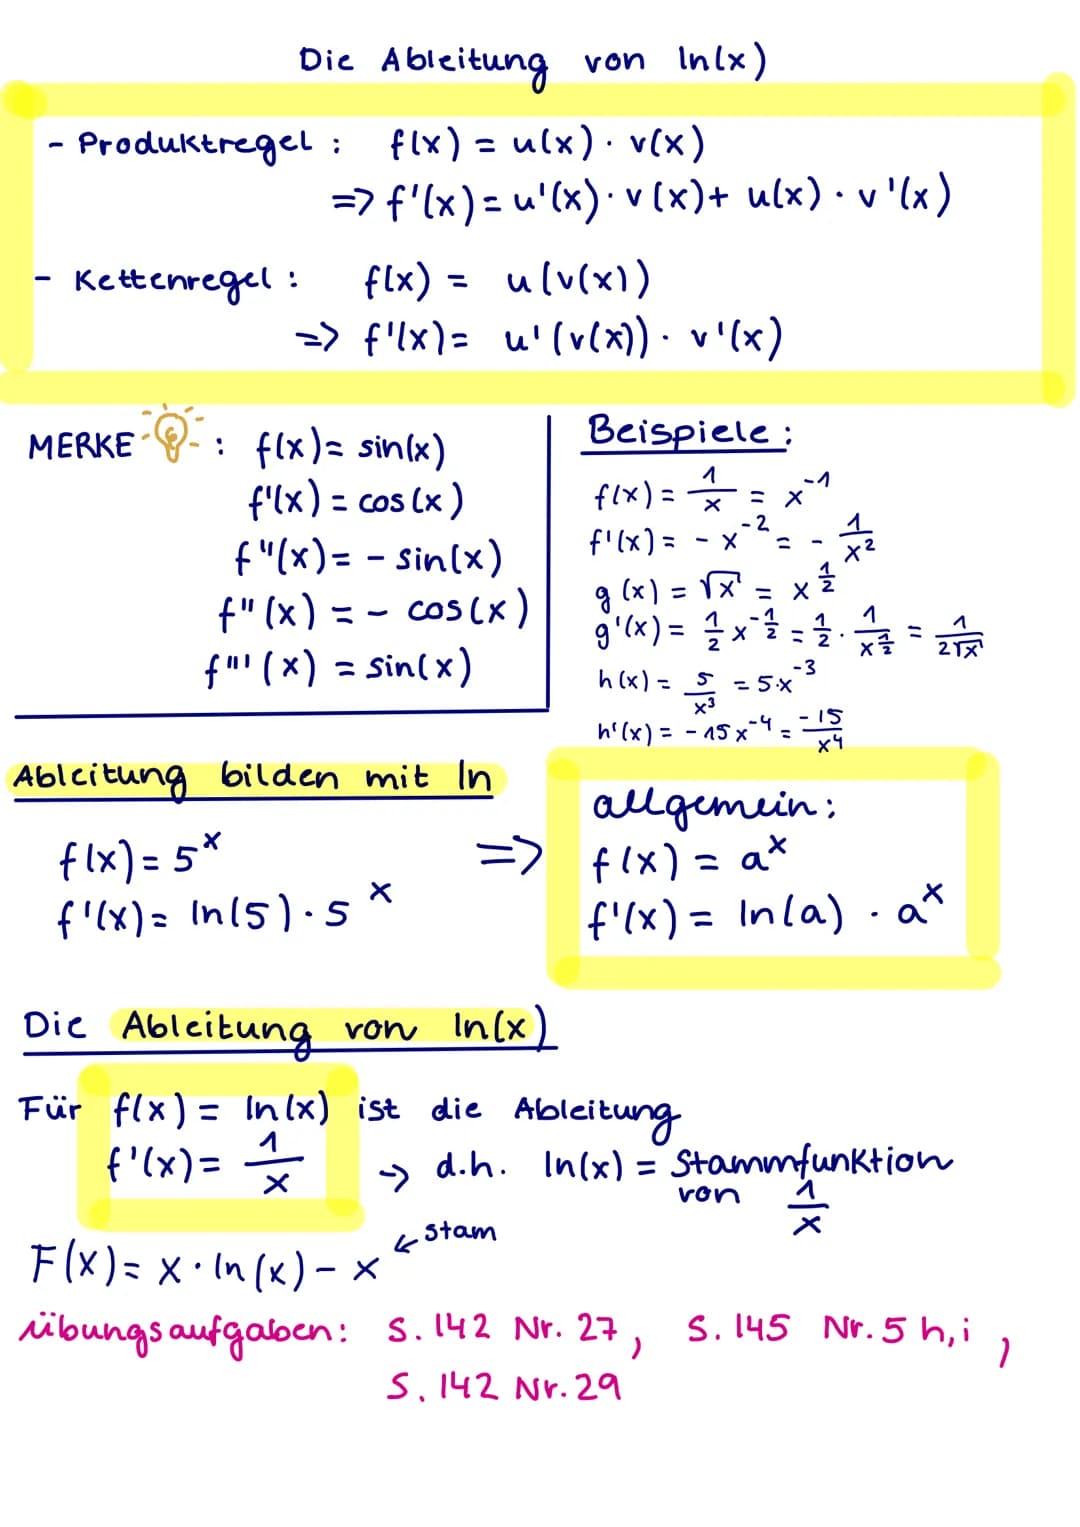 Die Ableitung von ln(x)
- Produktregel : f(x) = u(x) · v(x)
=> f'(x) = u'(x) · v(x) + u(x) · v'(x)
- Kettenregel : f(x) = u(v(x))
=> f'(x) = u'(v(x)) · v'(x)
MERKE : f(x) = sin(x)
f'(x) = cos(x)
f"(x) = - sin(x)
f"(x) = - cos(x)
f"'(x) = sin(x)
Beispiele :
f(x) = 1/x = x^-1
f'(x) = - x^-2 = - 1/x^2
g(x) = √x = x^1/2
g'(x) = 1/2 x^-1/2 = 1/2 · 1/x^1/2 = 1/2√x
h(x) = 5/x^3 = 5·x^-3
h'(x) = - 15x^-4 = -15/x^4
Ableitung bilden mit ln
f(x) = 5^x
f'(x) = ln(5) · 5^x
=>
allgemein :
f(x) = a^x
f'(x) = ln(a) · a^x
Die Ableitung von ln(x)
Für f(x) = ln(x) ist die Ableitung
f'(x) = 1/x -> d.h. ln(x) = Stammfunktion
von 1/x
F(x) = x · ln(x) - x ← stam
übungsaufgaben: S. 142 Nr. 27, S. 145 Nr. 5 h,i ,
S. 142 Nr. 29